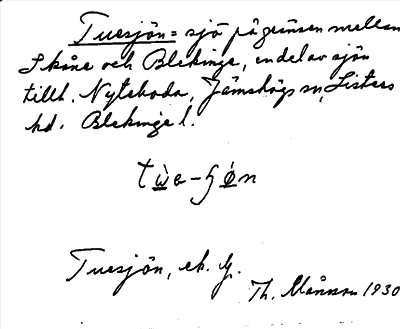 Tuesjön = sjö på gränsen mellan
Skåne och Blekinge, en del av sjön
tillh. Nyteboda, Jämshögs sn, Listers
hd. Blekinge l.
Tuesjön, ek. bl.
Th. Månsson 1930